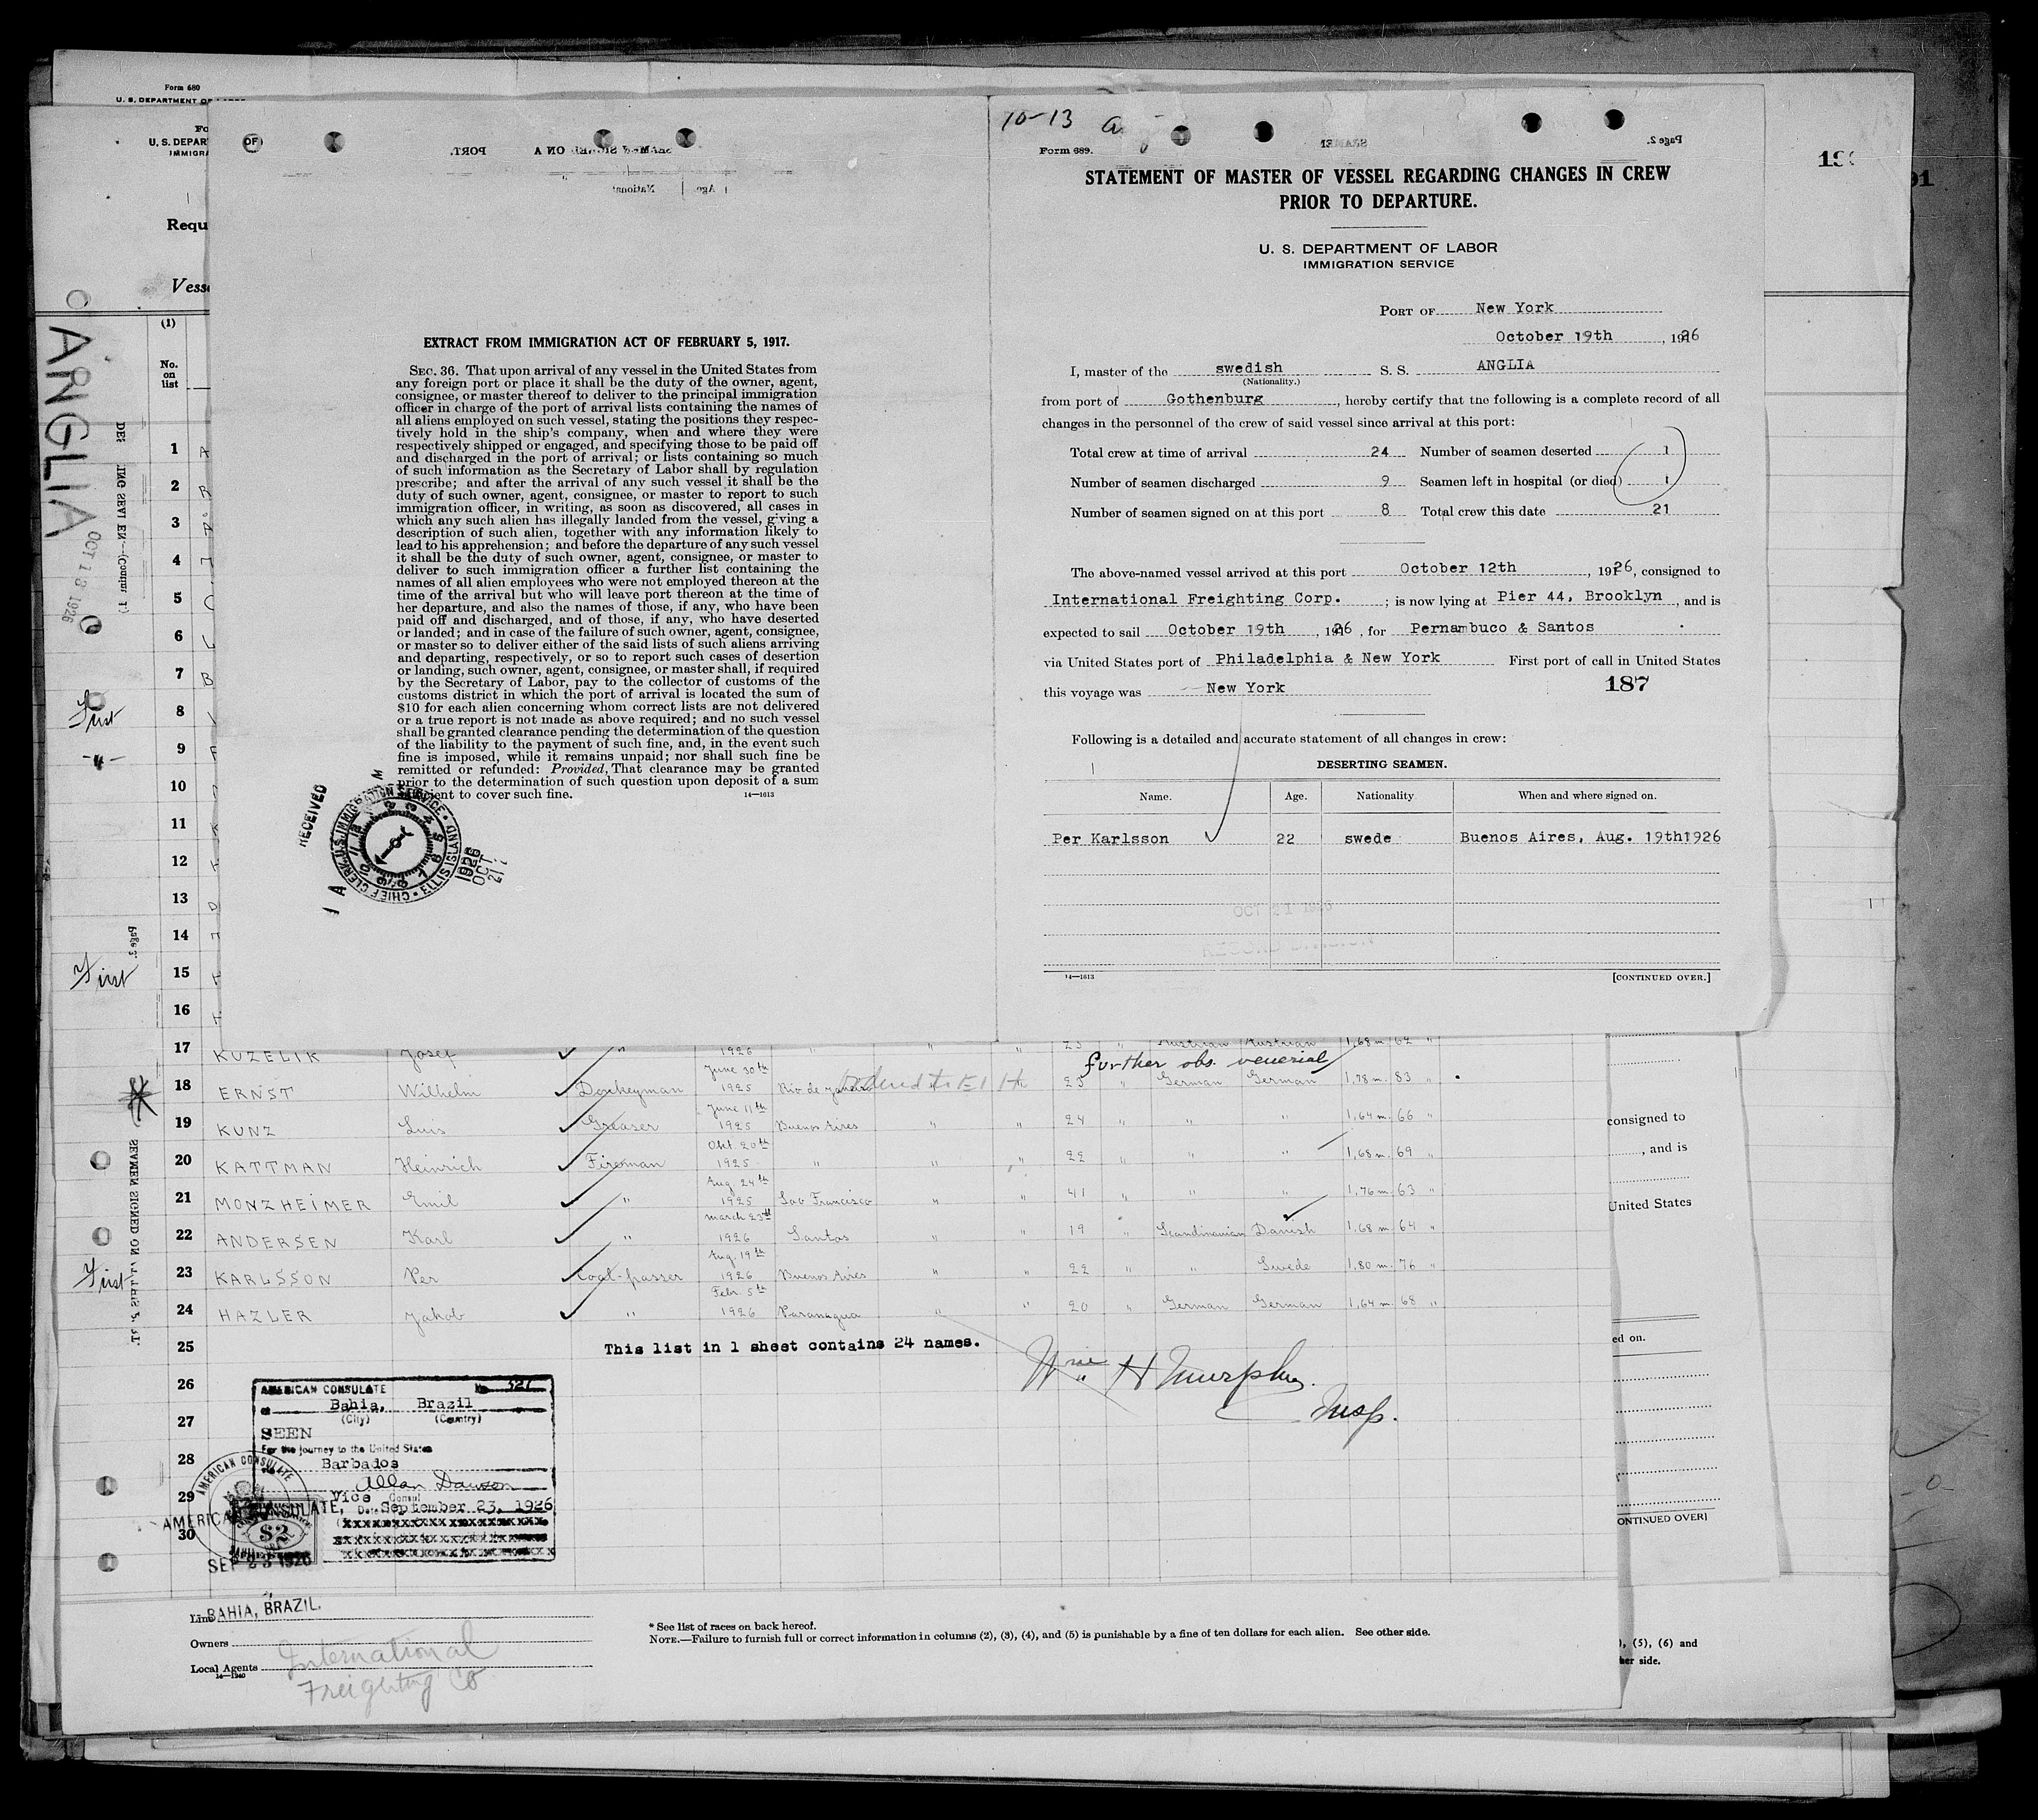 Form 680
U. S. DEPARTMENT OF
U. S. DEPAR
IMMIGRA
OF
Requ
Vess
(1)
No.
on
list
ANGLIA
OCT 13 1926
1
2
3
4
5
6
7
8
9
10
11
12
13
14
15
16
First
First
EXTRACT FROM IMMIGRATION ACT OF FEBRUARY 5, 1917.
SEC. 36. That upon arrival of any vessel in the United States from
any foreign port or place it shall be the duty of the owner, agent,
consignee, or master thereof to deliver to the principal immigration
officer in charge of the port of arrival lists containing the names of
all aliens employed on such vessel, stating the positions they respec-
tively hold in the ship's company, when and where they were
respectively shipped or engaged, and specifying those to be paid off
and discharged in the port of arrival; or lists containing so much
of such information as the Secretary of Labor shall by regulation
prescribe; and after the arrival of any such vessel it shall be the
duty of such owner, agent, consignee, or master to report to such
immigration officer, in writing, as soon as discovered, all cases in
which any such alien has illegally landed from the vessel, giving a
description of such alien, together with any information likely to
lead to his apprehension; and before the departure of any such vessel
it shall be the duty of such owner, agent, consignee, or master to
deliver to such immigration officer a further list containing the
names of all alien employees who were not employed thereon at the
time of the arrival but who will leave port thereon at the time of
her departure, and also the names of those, if any, who have been
paid off and discharged, and of those, if any, who have deserted
or landed; and in case of the failure of such owner, agent, consignee,
or master so to deliver either of the said lists of such aliens arriving
and departing, respectively, or so to report such cases of desertion
or landing, such owner, agent, consignee, or master shall, if required
by the Secretary of Labor, pay to the collector of customs of the
customs district in which the port of arrival is located the sum of
$10 for each alien concerning whom correct lists are not delivered
or a true report is not made as above required; and no such vessel
shall be granted clearance pending the determination of the question
of the liability to the payment of such fine, and, in the event such
fine is imposed, while it remains unpaid; nor shall such fine be
remitted or refunded: Provided, That clearance may be granted
prior to the determination of such question upon deposit of a sum
sufficient to cover such fine.
14—1613
RECEIVED
CHIEF CLERK U.S. IMMIGRATION SERVICE • ELLIS ISLAND
1926
OCT
21
10-13
Form 689.
Page 2.
STATEMENT OF MASTER OF VESSEL REGARDING CHANGES IN CREW
PRIOR TO DEPARTURE.
U. S. DEPARTMENT OF LABOR
IMMIGRATION SERVICE
PORT OF New York
October 19th, 1926
I, master of the swedish S. S. ANGLIA
(Nationality.)
from port of Gothenburg, hereby certify that the following is a complete record of all
changes in the personnel of the crew of said vessel since arrival at this port:
Total crew at time of arrival 24 Number of seamen deserted 1
Number of seamen discharged 9 Seamen left in hospital (or died) 1
Number of seamen signed on at this port 8 Total crew this date 21
The above-named vessel arrived at this port October 12th, 1926, consigned to
International Freighting Corp. ; is now lying at Pier 44, Brooklyn, and is
expected to sail October 19th, 1926, for Pernambuco & Santos
via United States port of Philadelphia & New York First port of call in United States
this voyage was New York
187
Following is a detailed and accurate statement of all changes in crew:
DESERTING SEAMEN.
Name. Age. Nationality When and where signed on.
Per Karlsson 22 swede Buenos Aires, Aug. 19th1926
OCT 21 1926
14—1613
[CONTINUED OVER.]
17 KUZELIK Josef " 1926 " " " 23 Austrian Austrian 1,68 m. 62 "
further obs. venerial
18 ERNST Wilhelm Donkeyman June 30th 1925 Rio de Janeiro 23 " German German 1,78 m. 83 "
19 KUNZ Luis Greaser June 11th 1925 Buenos Aires " " 24 " " " 1,64 m. 66 "
20 KATTMAN Heinrich Fireman Okt 20th 1925 " " " 22 " " " 1,68 m. 69 "
21 MONZHEIMER Emil " Aug. 24th 1925 Sao Francisco " " 41 " " " 1,76 m. 63 "
22 ANDERSEN Karl " march 23rd 1926 Santos " " 19 " Scandinavian Danish 1,68 m. 64 "
First 23 KARLSSON Per Coal-passer Aug. 19th 1926 Buenos Aires " " 22 " " Swede 1,80 m. 76 "
24 HAZLER Jakob " Febr. 5th 1926 Paranagua " " 20 " German German 1,64 m. 68 "
25 This list in 1 sheet contains 24 names.
26
27
28
29
30
Wm H Murphy
Insp.
AMERICAN CONSULATE No. 527
at Bahia, Brazil
(City) (Country)
SEEN
For the journey to the United States
Barbados
Allan Dawson
Vice Consul
Date September 23, 1926
AMERICAN CONSULATE
AMERICAN CONSULATE,
$2
SEP 23 1926
BAHIA, BRAZIL.
Line
Owners
Local Agents International
Freighting Co
14—1240
* See list of races on back hereof.
NOTE.—Failure to furnish full or correct information in columns (2), (3), (4), and (5) is punishable by a fine of ten dollars for each alien. See other side.
consigned to
, and is
United States
ed on.
ONTINUED OVER]
, (5), (6) and
her side.
SEAMEN SIGNED ON AT THIS PORT.
Page 3.
91